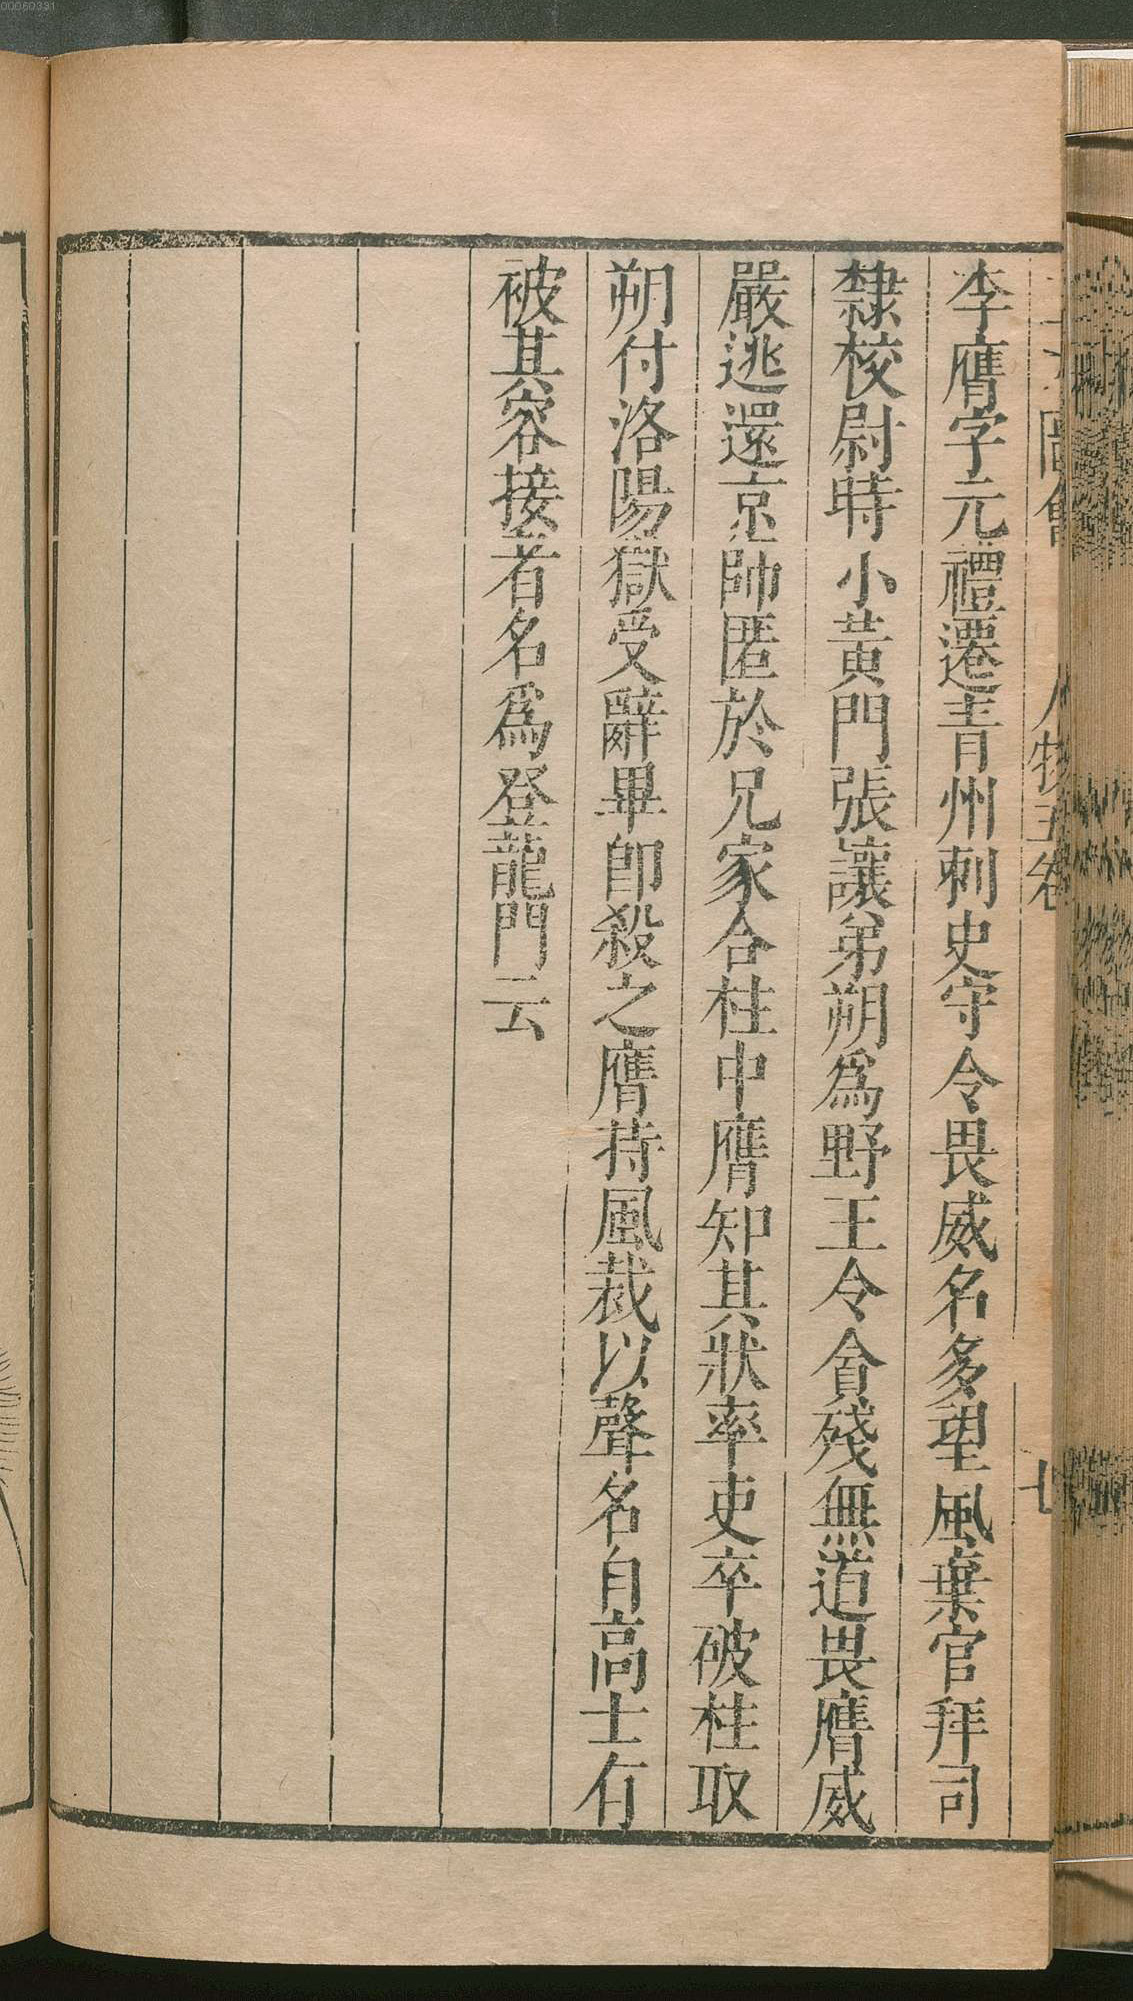 李膺字元禮遷青州刺史守令畏威名多望風棄官拜司
隸校尉時小黃門張讓弟朔爲野王令貪殘無道畏膺威
嚴逃還京師匿於兄家合柱中膺知其狀率吏卒破柱取
朔付洛陽獄受辭畢卽殺之膺持風裁以聲名自高士有
被其容接者名爲登龍門云
圖會
人物五卷
七
00060331